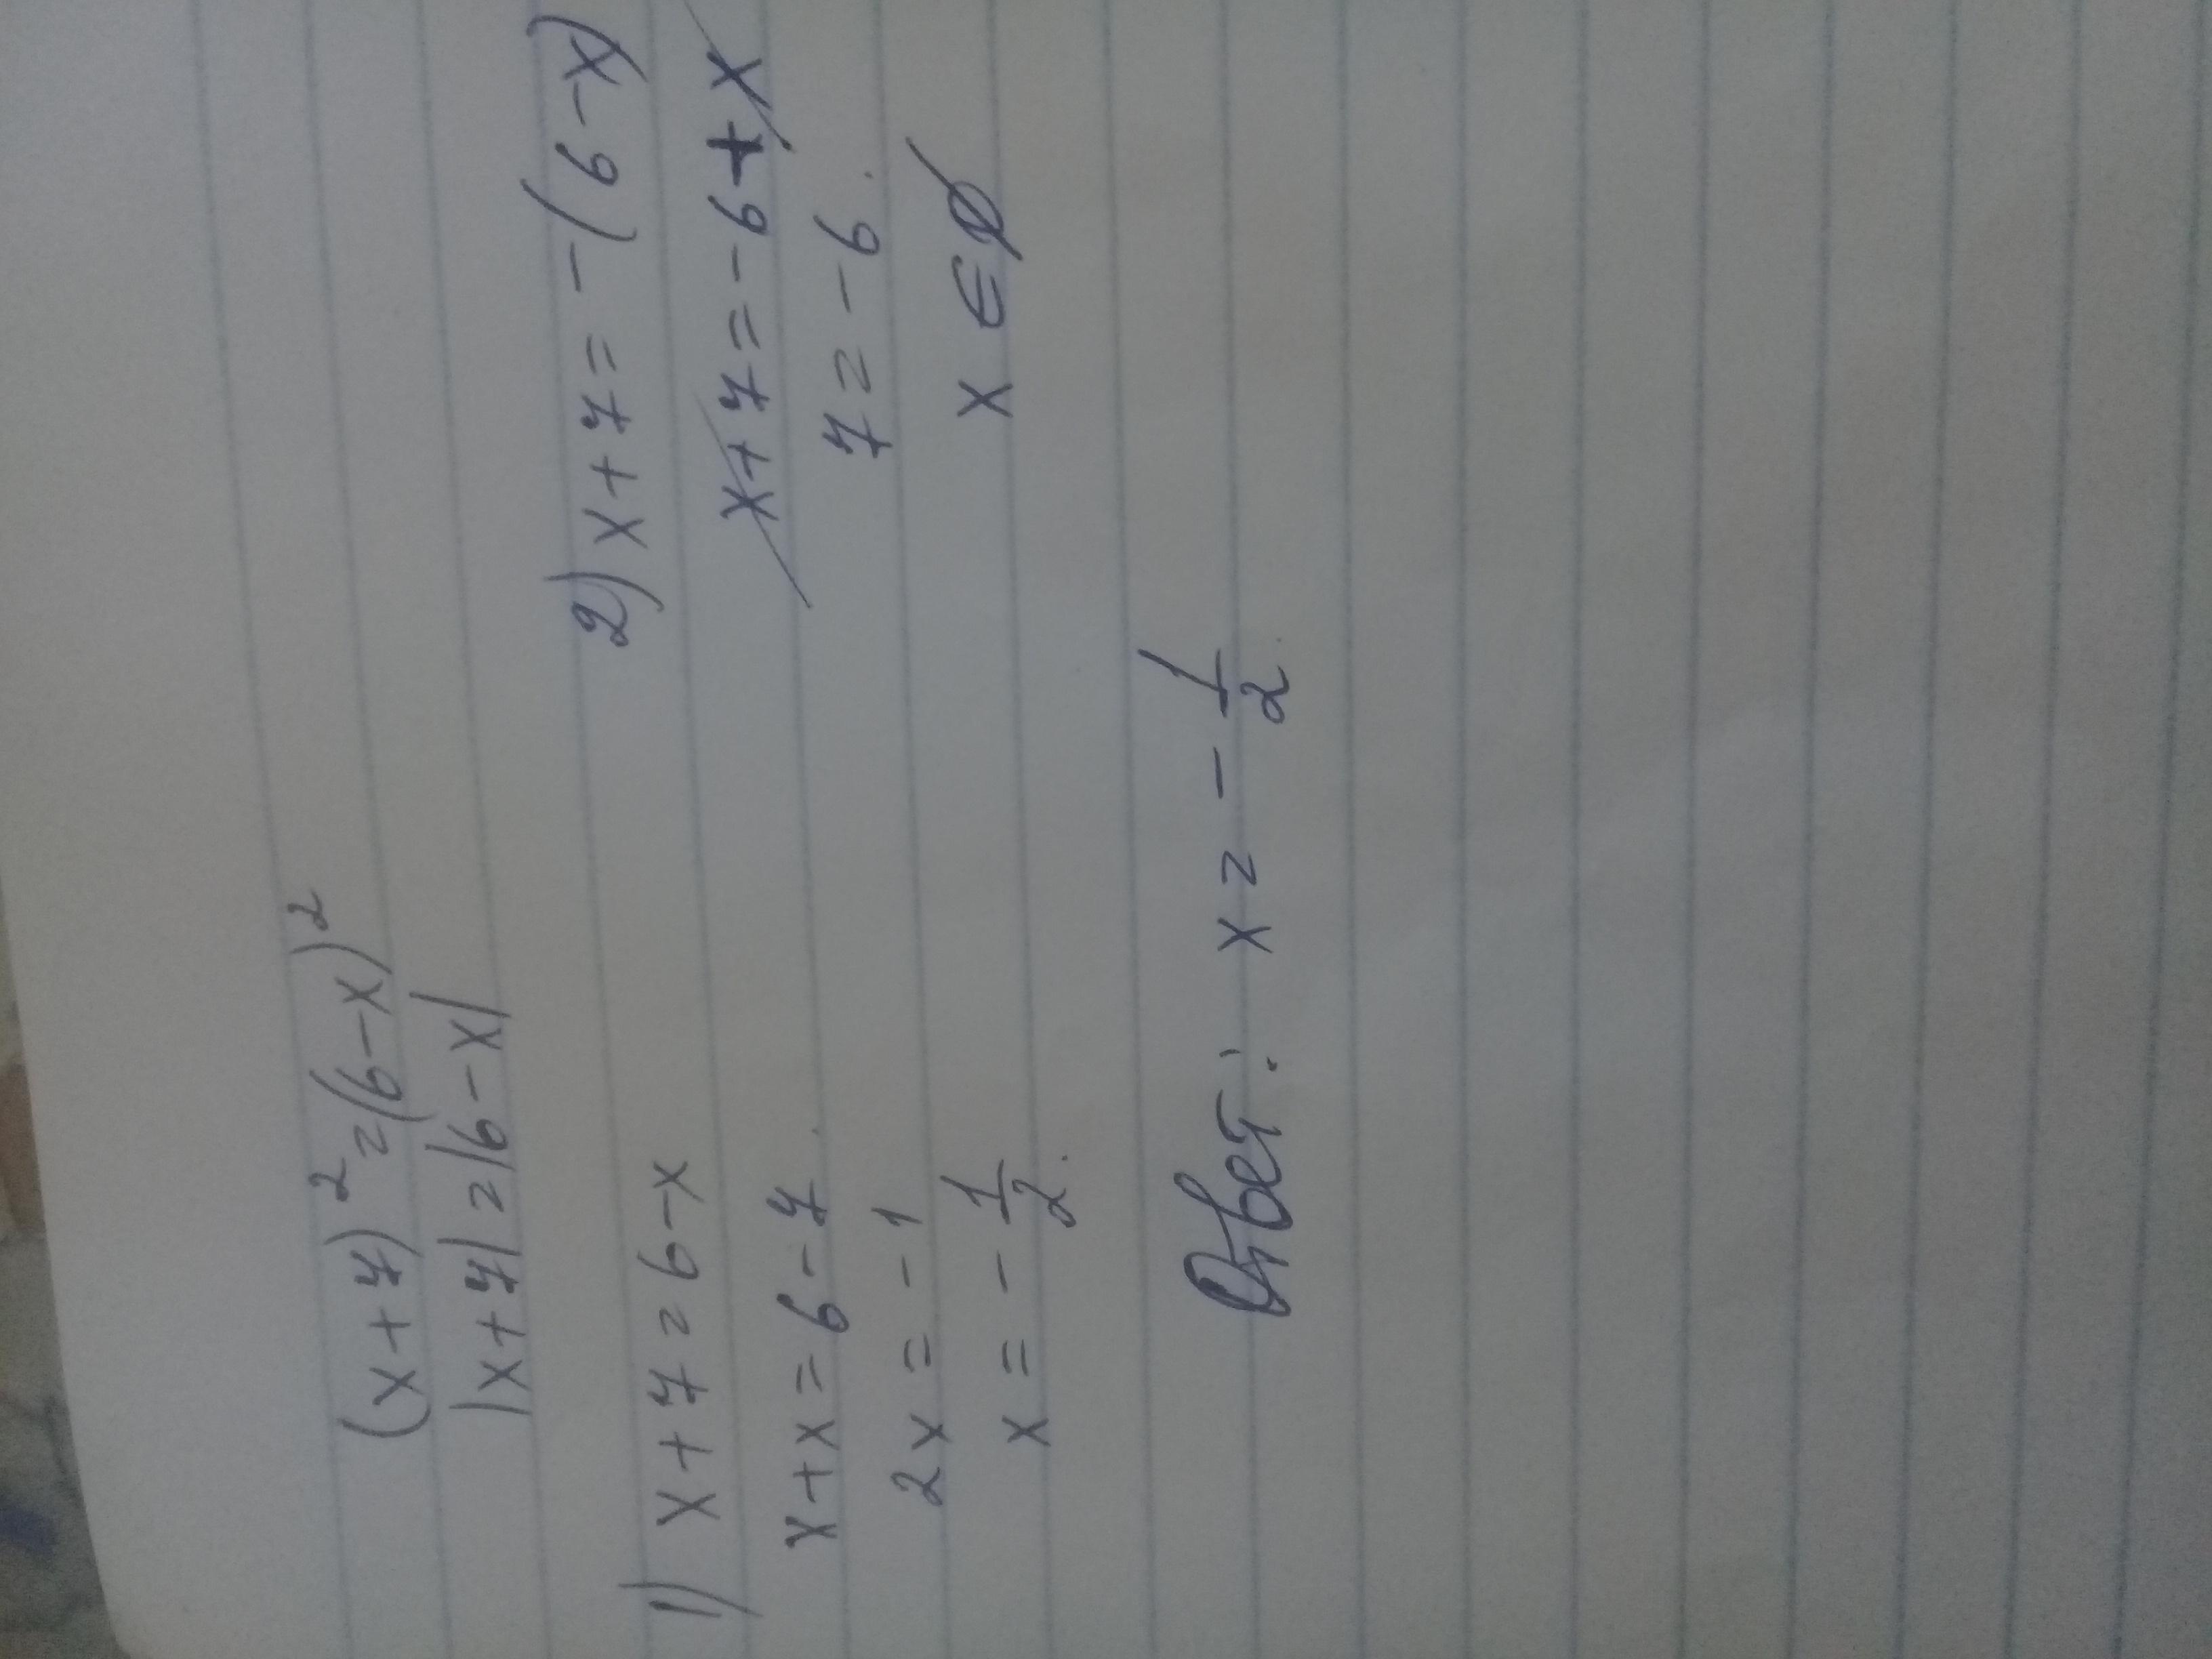 (x+7)²=(6-x)²
|x+7|=|6-x|
1) x+7=6-x
x+x=6-7
2x=-1
x=-1/2.
2) x+7=-(6-x)
x+7=-6+x
7=-6.
x∈∅
Ответ: x=-1/2.